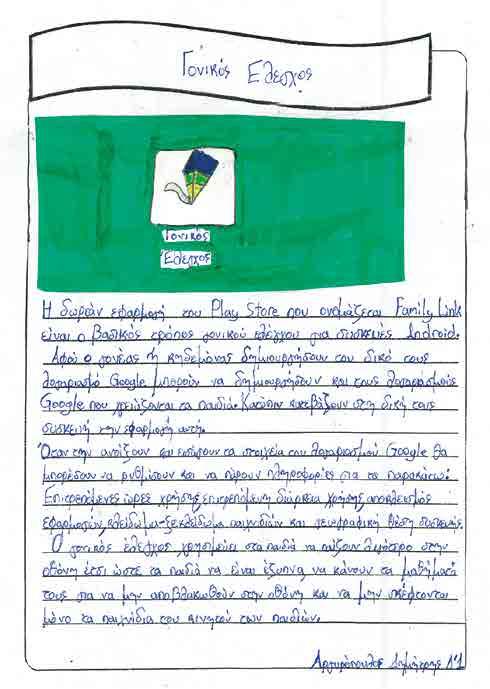 Γονικός Έλεγχος
Γονικός
Έλεγχος
Η δωρεάν εφαρμογή του Play Store που ονομάζεται Family Link
είναι ο βασικός τρόπος γονικού ελέγχου για συσκευές Android.
Αφού ο γονέας ή κηδεμόνας δημιουργήσουν τον δικό τους
λογαριασμό Google μπορούν να δημιουργήσουν και τους λογαριασμούς
Google που χρειάζονται τα παιδιά. Κατόπιν κατεβάζουν στη δική τους
συσκευή την εφαρμογή αυτή.
Όταν την ανοίξουν και εισάγουν τα στοιχεία του λογαριασμού Google θα
μπορέσουν να ρυθμίσουν και να πάρουν πληροφορίες για τα παρακάτω:
Επιτρεπόμενες ώρες χρήσης, επιτρεπόμενη διάρκεια χρήσης, αποκλεισμός
εφαρμογών, κλείδωμα-ξεκλείδωμα παιχνιδιών και γεωγραφική θέση συσκευής.
Ο γονικός έλεγχος χρησιμεύει στα παιδιά να παίζουν λιγότερο στην
οθόνη έτσι ώστε τα παιδιά να είναι έξυπνα, να κάνουν τα μαθήματά
τους για να μην αποβλακωθούν στην οθόνη και να μην σκέφτονται
μόνο τα παιχνίδια του κινητού των παιδιών.
Αργυρόπουλος Δημήτρης Δ'1